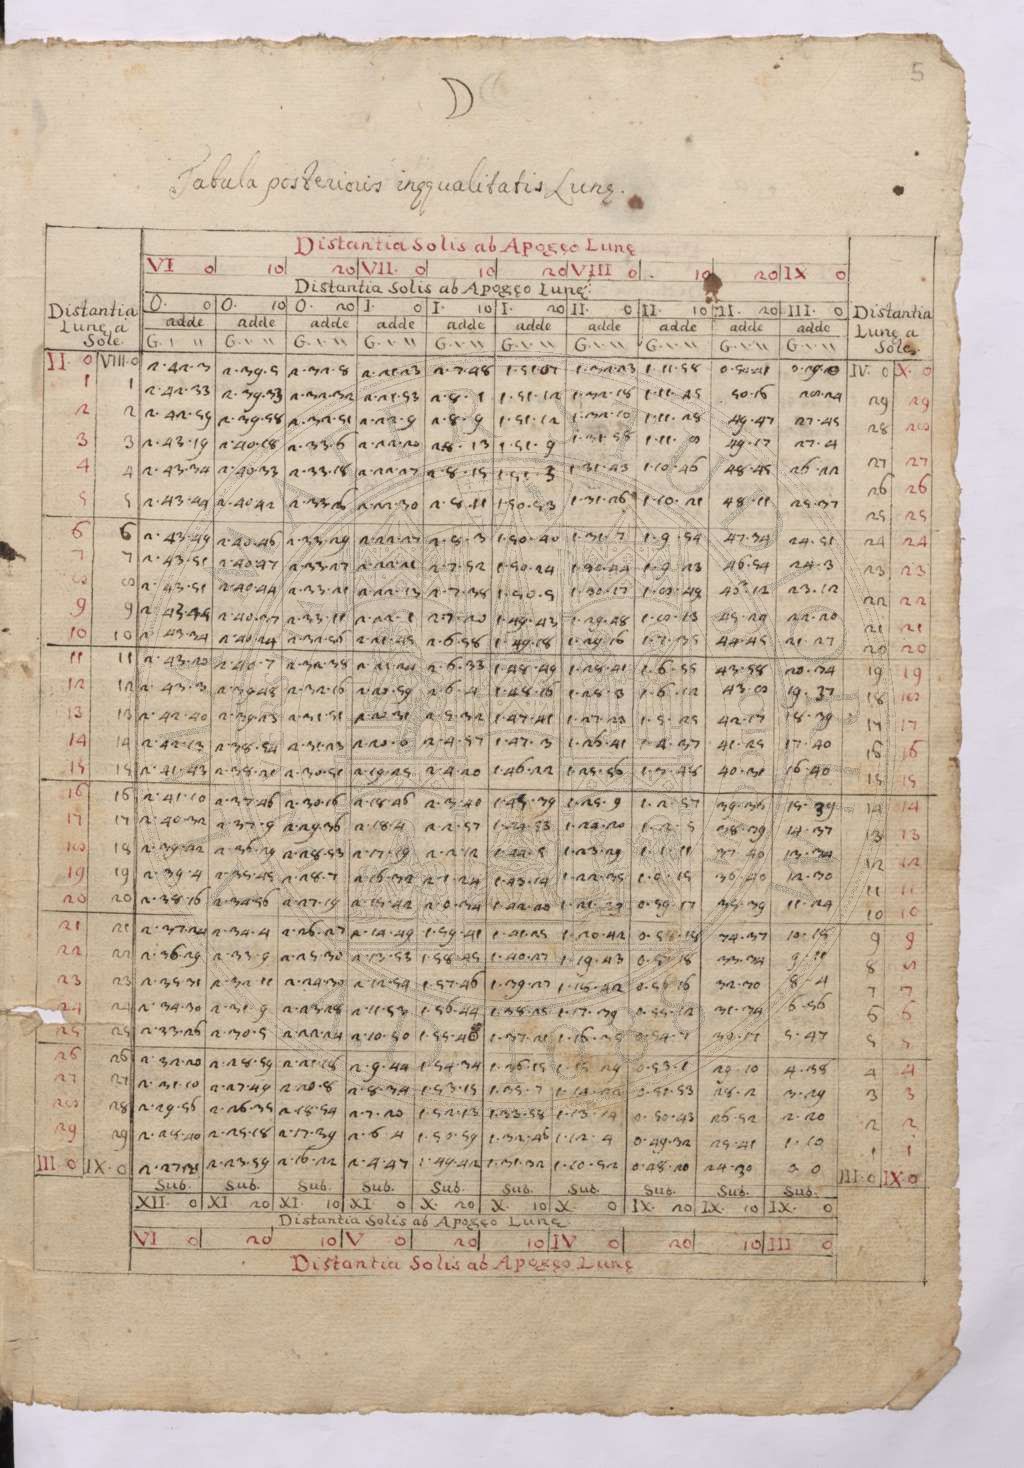 5
Tabula posterioris inęqualitatis Lunę.
Distantia Solis ab Apogęo Lunę
VI 0 10 20 VII. 0 10 20 VIII 0 10 20 IX 0
Distantia Solis ab Apogęo Lunę
Distantia Lunę a Sole
0. 0 0. 10 0. 20 I. 0 I. 10 I. 20 II. 0 II. 10 II. 20 III. 0
Distantia Lunę a Sole
adde adde adde adde adde adde adde adde adde adde
II. 0 VIII. 0 2.42.3 2.39.5 2.32.8 2.21.23 2.7.48 1.51.07 1.32.23 1.11.58 IV. 0 X. 0
1 1 2.42.33 2.39.33 2.32.32 2.21.53 2.8.1 1.51.12 1.32.18 1.11.45 50.16 29 29
2 2 2.42.59 2.39.58 2.32.51 2.22.9 2.8.9 1.51.12 1.32.10 1.11.25 49.47 27.45 28 28
3 3 2.43.19 2.40.18 2.33.6 2.22.20 2.8.13 1.51.9 1.31.58 49.17 27.4 27 27
4 4 2.43.34 2.40.33 2.33.18 2.22.27 2.8.15 1.51.3 1.31.43 1.10.46 48.45 26.22 26 26
5 5 2.43.44 2.40.42 2.33.26 2.22.30 2.8.11 1.50.53 1.31.26 1.10.21 48.11 25.37 25 25
6 6 2.43.49 2.40.46 2.33.29 2.22.27 2.8.3 1.50.40 1.31.7 1.9.54 47.34 24.51 24 24
7 7 2.43.51 2.40.47 2.33.27 2.22.21 2.7.52 1.50.24 1.30.44 1.9.23 46.54 24.3 23 23
8 8 2.43.51 2.40.44 2.33.21 2.22.13 2.7.38 1.50.5 1.30.17 1.8.49 46.12 23.12 22 22
9 9 2.43.45 2.40.37 2.33.11 2.22.1 2.7.20 1.49.43 1.29.48 1.8.13 45.29 22.20 21 21
10 10 2.43.34 2.40.24 2.32.56 2.21.45 2.6.58 1.49.18 1.29.16 1.7.35 44.45 21.27 20 20
11 11 2.43.20 2.40.7 2.32.38 2.21.24 2.6.33 1.48.49 1.28.41 1.6.55 43.58 20.34 19 19
12 12 2.43.3 2.39.48 2.32.16 2.20.59 2.6.4 1.48.16 1.28.3 1.6.12 43.8 19.37 18 18
13 13 2.42.40 2.39.23 2.31.51 2.20.31 2.5.32 1.47.41 1.27.23 1.5.25 42.17 18.39 17 17
14 14 2.42.13 2.38.54 2.31.23 2.20.0 2.4.57 1.47.3 1.26.41 1.4.37 41.25 17.40 16 16
15 15 2.41.43 2.38.21 2.30.51 2.19.25 2.4.20 1.46.22 1.25.56 1.3.48 40.31 16.40 15 15
16 16 2.41.10 2.37.46 2.30.16 2.18.46 2.3.40 1.45.39 1.25.9 1.2.57 39.36 15.39 14 14
17 17 2.40.32 2.37.9 2.29.36 2.18.4 2.2.57 1.44.53 1.24.20 1.2.5 38.39 14.37 13 13
18 18 2.39.42 2.36.29 2.28.53 2.17.19 2.2.12 1.44.5 1.23.29 1.1.11 37.40 13.34 12 12
19 19 2.39.4 2.35.45 2.28.7 2.16.32 2.1.24 1.43.14 1.22.35 1.0.15 36.40 12.30 11 11
20 20 2.38.16 2.34.56 2.27.19 2.15.42 2.0.34 1.42.20 1.21.39 0.59.17 35.39 11.24 10 10
21 21 2.37.24 2.34.4 2.26.27 2.14.49 1.59.41 1.41.25 1.20.42 0.58.18 34.37 10.18 9 9
22 22 2.36.29 2.33.9 2.25.30 2.13.53 1.58.45 1.40.27 1.19.43 0.57.18 33.34 9.11 8 8
23 23 2.35.31 2.32.11 2.24.30 2.12.54 1.57.46 1.39.27 1.18.42 0.56.16 32.30 8.4 7 7
24 24 2.34.30 2.31.9 2.23.28 2.11.53 1.56.44 1.38.25 1.17.39 0.55.12 31.34 6.56 6 6
25 25 2.33.26 2.30.5 2.22.24 2.10.50 1.37.21 1.16.35 0.54.7 5.47 5 5
26 26 2.32.20 2.28.59 2.21.18 2.9.44 1.54.34 1.36.15 0.53.1 29.10 4.38 4 4
27 27 2.31.10 2.27.49 2.20.8 2.8.34 1.53.15 1.35.7 0.51.53 28.2 3.29 3 3
28 28 2.29.56 2.26.35 2.18.54 2.7.20 1.52.13 1.33.58 1.13.14 0.50.43 26.52 2.20 2 2
29 29 2.28.40 2.25.18 2.17.39 2.6.4 1.50.59 1.32.46 1.12.4 0.49.32 25.41 1.10 1 1
III. 0 IX. 0 2.27.21 2.23.59 2.16.22 2.4.47 1.49.42 1.31.32 1.10.52 0.48.20 24.30 0 0 III. 0 IX. 0
Sub. Sub. Sub. Sub. Sub. Sub. Sub. Sub. Sub. Sub.
XII. 0 XI. 20 XI. 10 XI. 0 X. 20 X. 10 X. 0 IX. 20 IX. 10 IX. 0
Distantia Solis ab Apogęo Lunę
VI 0 20 10 V 0 20 10 IV 0 20 10 III 0
Distantia Solis ab Apogęo Lunę